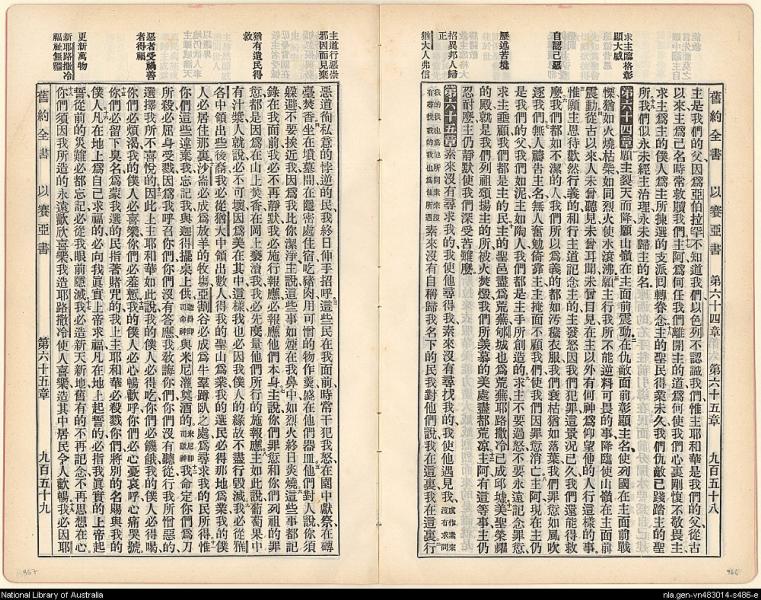 舊約全書 以賽亞書 第六十四章 第六十五章 九百五十八
主是我們的父因爲亞伯拉罕不知道我們以色列不認識我們惟主耶和華是我們的父從古
以來主爲己名時常救贖我們主阿爲何任我們離開主的道爲何使我們心裏剛愎不敬畏主
求主爲主的僕人爲主所揀選的支派回轉眷念主的聖民得業未久我們仇敵已踐踏主的聖
所我們似永未經主治理永未歸主的名
求主臨格彰顯大威
第六十四章願主裂天而降願山嶺在主面前震動在仇敵面前彰顯主名使列國在主面前戰
慄猶如火燒枯柴如同烈火使水滾沸願主行我所不能逆料可畏的事降臨使山嶺在主面前
震動從古以來人未曾聽見未曾耳聞未曾目見在主以外有何神爲仰望他的人行這樣的事
自認己惡
惟願主恩待歡然行義的和行主道記念主的主發怒因我們犯罪這景況已久我們還能得救
麼我們都如不潔的人我們所以爲義的都如污穢衣服我們衰枯猶如落葉我們罪愆如風吹
逐我們無人禱告主名無人奮勉倚靠主主掩面不顧我們使我們因罪愆消亡主阿現在主仍
是我們的父我們如泥主如陶人我們都是主手所創造的求主不要過怒不要永遠記念罪愆
歷述苦難
求主垂顧我們都是主的民主的聖邑盡爲荒蕪郇城也爲荒蕪耶路撒冷已成邱墟美聖榮耀
的殿就是我們列祖頌揚主的所被火焚燬我們所羡慕的美處盡都荒涼主阿有這等事主仍
忍耐麼主仍靜默使我們深受苦難麼
招異邦人歸正
第六十五章素來沒有尋求我的我使他尋得我素來沒有尋找我的我使他遇見我
猶大人弗信
素來沒有自稱歸我名下的民我對他們說我在這裏我在這裏
主道行惡崇邪因而見棄
惡道徇私意的悖逆的民我終日伸手招呼這些民在我面前時常干犯我怒在園中獻祭在磚
臺焚香在墳墓間在隱密處住宿吃豬肉用可憎的物作羹盛在他們器皿他們對人說你須
躲避不要挨近我因爲我比你潔淨主說這些事如煙在我鼻中如烈火終日炎燒這些事都記
錄在我面前我必不再靜默我必施行報應必報應他們本身主說你們罪愆和你們列祖的罪
愆都是因爲在山上焚香在岡上褻瀆我我必先度量他們所行的施報應主如此說葡萄果中
猶有遺民得救
有汁漿人就說必不可壞因爲美在其中這樣我也必因我僕人的緣故不盡行毀滅我必從雅
各中領出些後裔我必從猶大中領出數人得我的聖山爲業我的選民必得那地爲業我的僕
人必居住那裏沙崙必成爲放羊的牧場亞割谷必成爲牛羣蹲臥之處爲尋求我的民所得惟
惡者受禍善者得福
你們所殺必屈身受戮因爲我呼召你們你們沒有答應我敎誨你們你們沒有聽從行我所憎惡的
選擇我所不喜悅的因此上主耶和華如此說我的僕人必得吃你們必飢餓我的僕人必得喝
你們必煩渴我的僕人必喜樂你們必羞慙我的僕人必心暢歡呼你們必心憂哀呼心痛哭號
你們必留下臭名爲我選的民指著賭咒的我上主耶和華必殺戮你們將別的名賜與我的
僕人凡在地上爲自己求福的必向我眞實上帝求福凡在地上起誓的必指我眞實的上帝起
更新萬物
誓從前的災難必都忘記必從我眼前隱滅我必造新天新地舊有的不再記念不再思想在心
新耶路撒冷福祉無窮
你們須因我所造的永遠歡欣喜樂我造耶路撒冷使人喜樂造其中居民令人歡暢我必因耶
舊約全書 以賽亞書 第六十五章 九百五十九
National Library of Australia
nla.gen-vn483014-s486-e